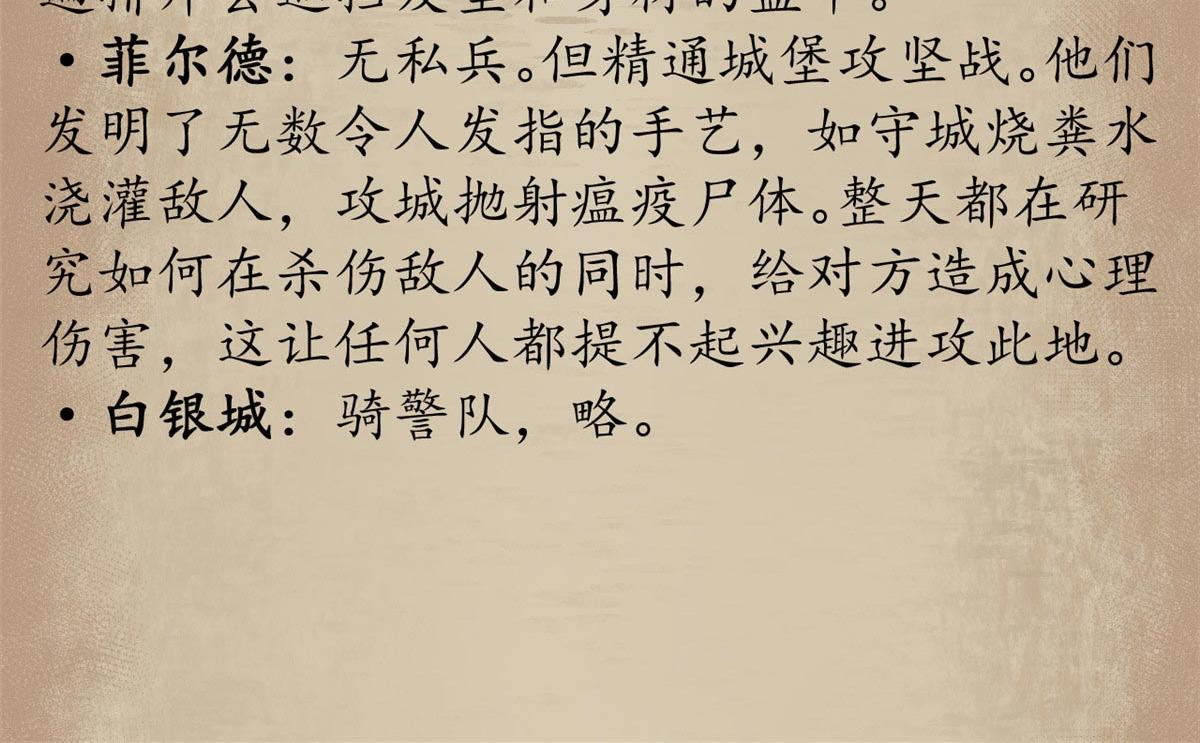 • 菲尔德：无私兵。但精通城堡攻坚战。他们
发明了无数令人发指的手艺，如守城烧粪水
浇灌敌人，攻城抛射瘟疫尸体。整天都在研
究如何在杀伤敌人的同时，给对方造成心理
伤害，这让任何人都提不起兴趣进攻此地。
• 白银城：骑警队，略。